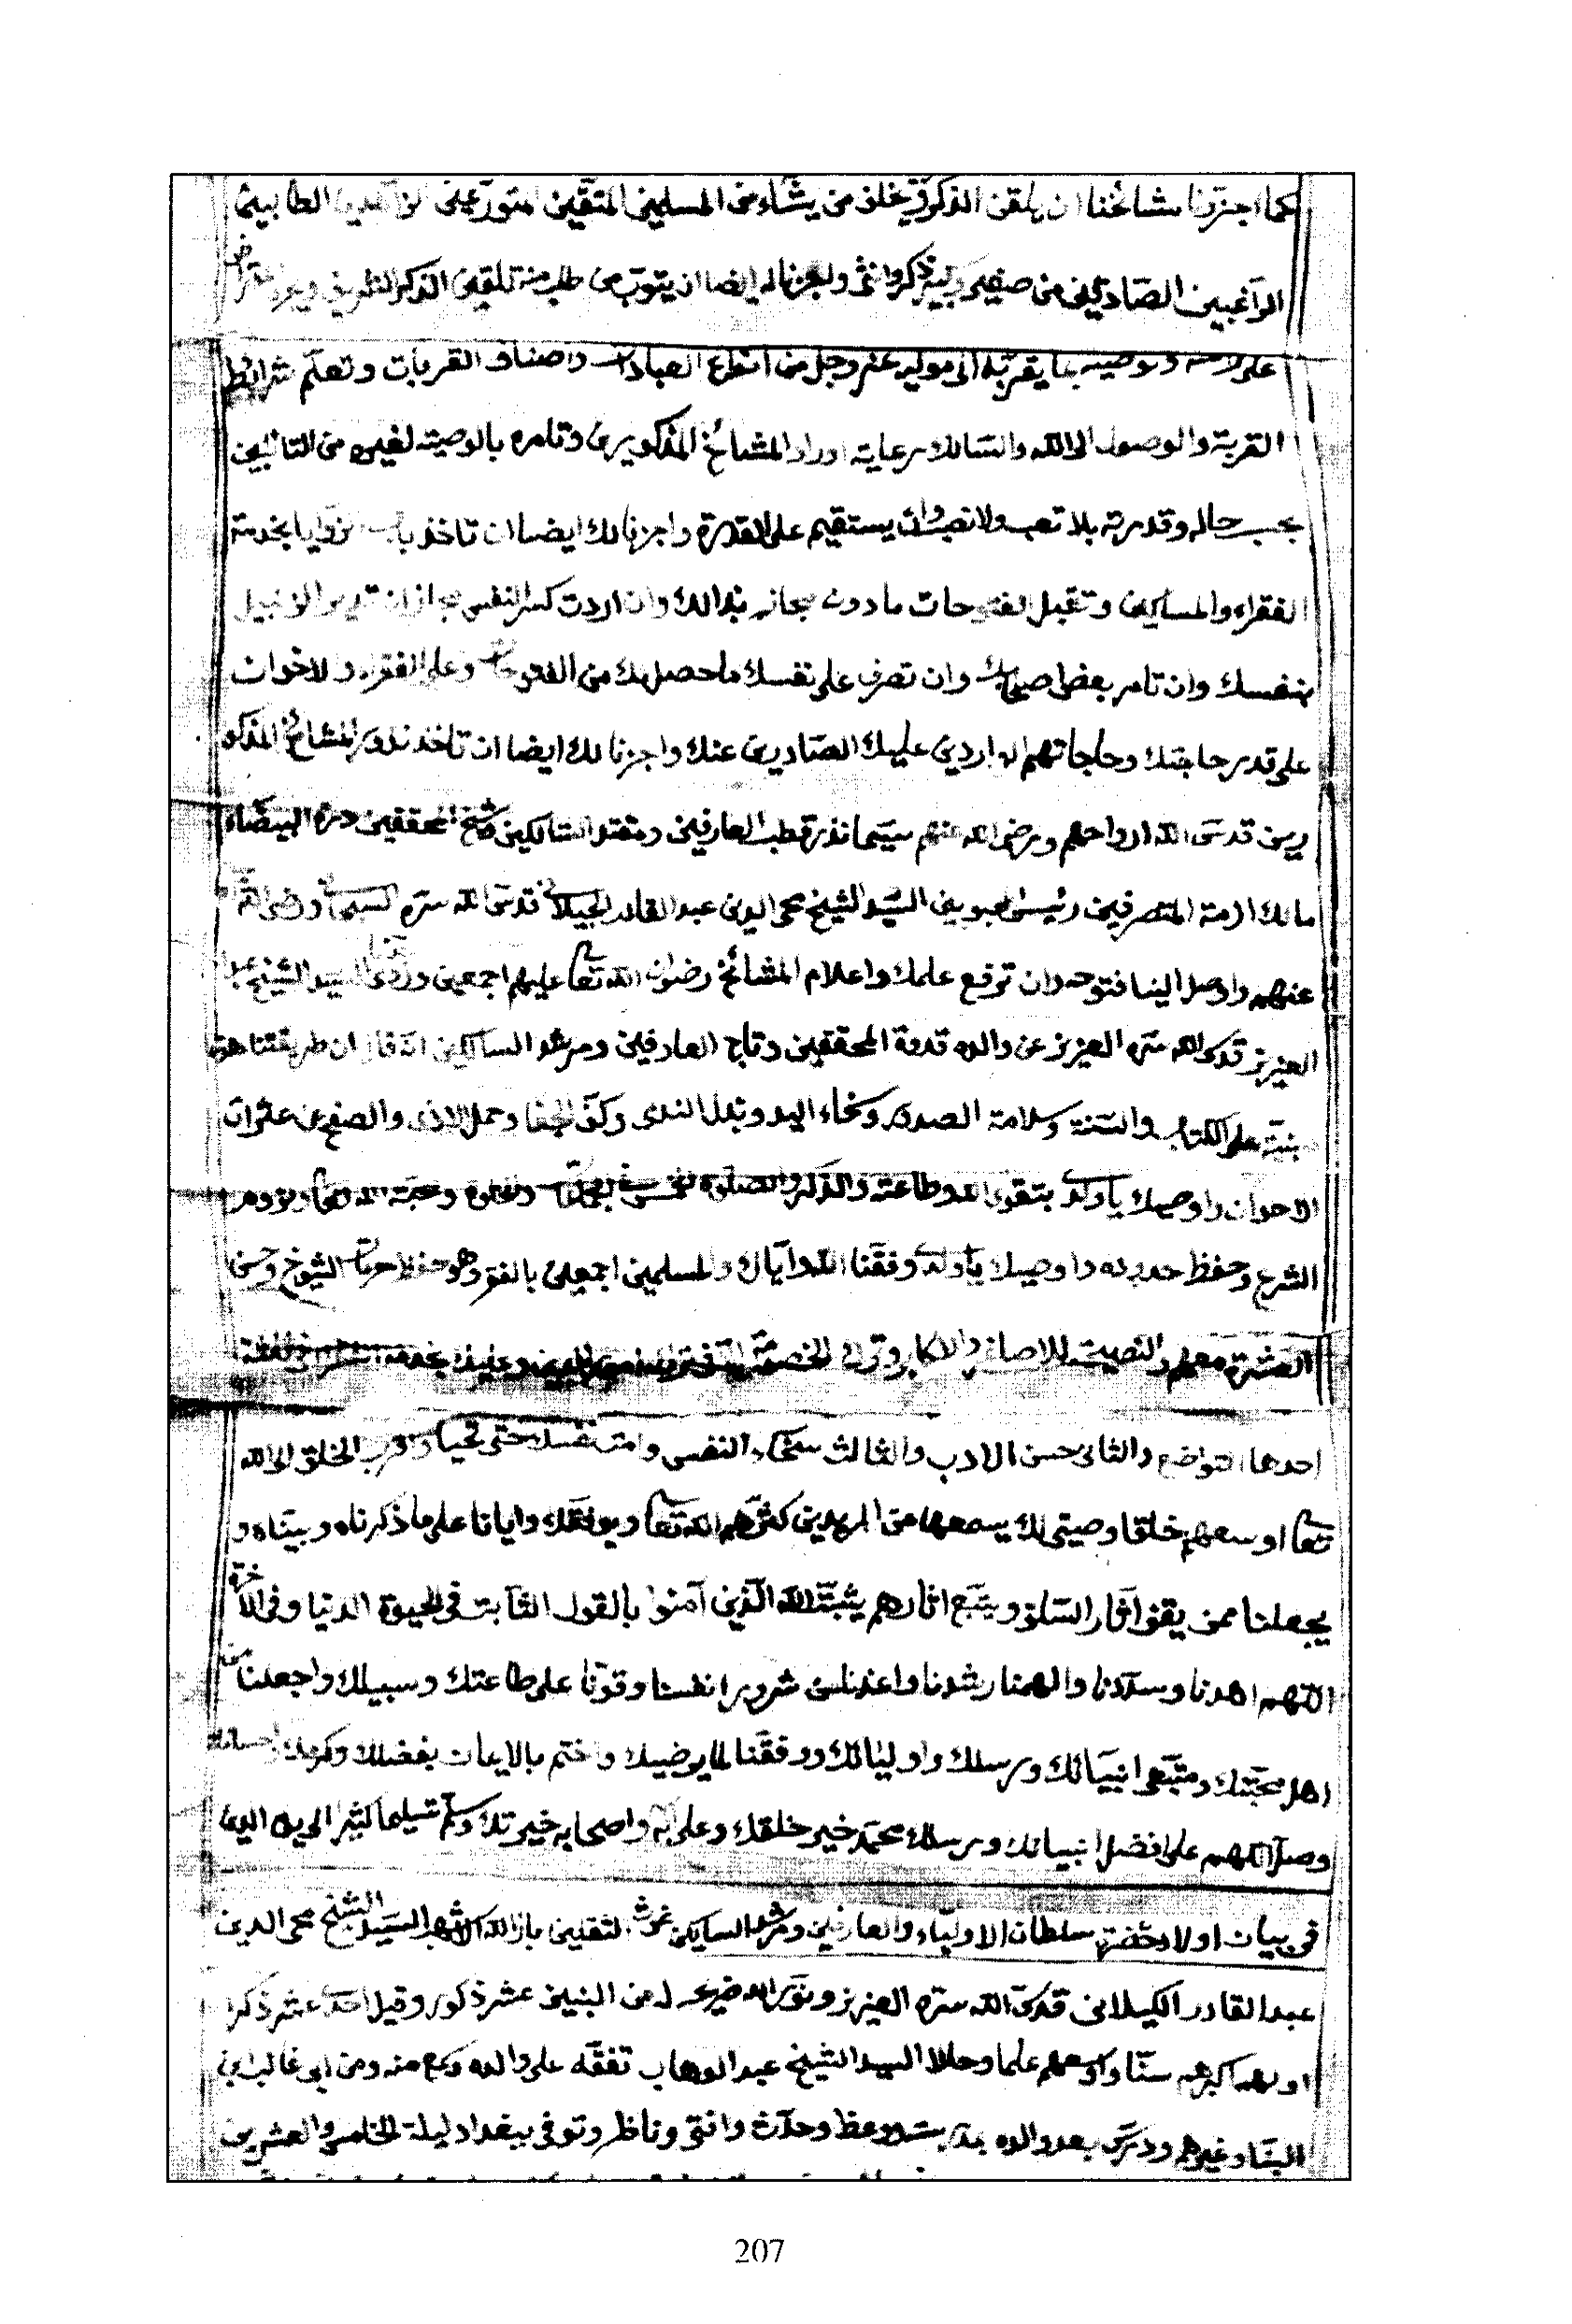 كما اجزنا مشائخنا ان يلقن الذكر ويخلف من يشاء من المسلمين المتقين المتورعين الطالبين
الراغبين الصادقين من صغير وكبير ذكر وانثى واجزنا له ايضا ان يتوب من طلب منه تلقين الذكر
وتوصيه بما يقربه الى موليه عز وجل من انواع العبادات واصناف القربات وتعلم شرائط
القربة والوصول الى الله والسالك رعاية اوراد المشائخ المذكورين وتامره بالوصية لغيره من التائبين
بحسب حاله وقدرته بلا تعب ولا نصب وان يستقيم على القدرة واجزنا لك ايضا ان تاخذ بخدمة
الفقراء والمساكين وتقبل الفتوحات مادون مجاز بذالك وان اردت كسر النفس الزنبيل
بنفسك وان تامر بعض اصحابك وان تصرف على نفسك ما حصل لك من الفتوحات وعلى الفقراء والاخوان
على قدر حاجتك وحاجاتهم الواردين عليك الصادرين عنك واجزنا لك ايضا ان تاخذ نذور المشائخ المذكو
رين قدس الله ارواحهم ورضى الله عنهم سيما نذر قطب العارفين ومقتدا السالكين وشيخ المحققين درة البيضاء
مالك ازمة المتصرفين رئيس المحبوبين السيد الشيخ محى الدين عبد القادر الجيلانى قدس الله سره
عنهم واوصل الينا فتوحه وان ترفع علمك واعلام المشائخ رضوان الله تعا عليهم اجمعين السيد الشيخ عبد
العزيز قدس الله سره العزيز عن والده قدوة المحققين وتاج العارفين ومرشد السالكين انه قال ان طريقتنا هذه
مبنية على الكتاب والسنة وسلامة الصدور وسخاء اليد وبذل الندى وكف الجفا وحمل الاذى والصفح عن عثرات
الاخوان واوصيك يا ولدى بتقوى الله وطاعته والذكر والصلوة الخمس ومحبة الله
الشرع وحفظ حدوده واوصيك يا ولدى وفقنا الله واياك والمسلمين اجمعين بالفقر وهو حفظ حرمات الشيوخ وحسن
العشرة معهم والنصيحة للاصاغر والاكابر وترك الخصومة
احدها التواضع والثانى حسن الادب والثالث سخاء النفس وامت نفسك حتى تحيا واقرب الخلق الى الله
تعا اوسعهم خلقا وصيتى لك يسمعها من المريدين كثرهم الله تعا ويوفقك وايانا على ما ذكرناه وبيناه و
يجعلنا ممن يقفو اثار السلف ويتبع اثارهم يثبت الله الذين آمنوا بالقول الثابت فى الحيوة الدنيا وفى الآخرة
اللهم اهدنا وسددنا والهمنا رشدنا واعذنا من شرور انفسنا وقونا على طاعتك وسبيلك واجعلنا من
اهل محبتك ومتبعى انبيائك ورسلك واوليائك ووفقنا لما يرضيك واختم بالايمان بفضلك وكرمك
وصل اللهم على افضل انبيائك ورسلك محمد خير خلقك وعلى آله واصحابه خيرتك وسلم تسليما كثيرا الى يوم الدين
فى بيان اولاد حضرة سلطان الاولياء والعارفين ومرشد السالكين غوث الثقلين باز الله الاشهب السيد الشيخ محى الدين
عبد القادر الكيلانى قدس الله سره العزيز ونور الله ضريحه له من البنين عشر ذكور وقيل احد عشر ذكرا
اولهم اكبرهم سنا واوسعهم علما وحلما السيد الشيخ عبد الوهاب تفقه على والده وسمع منه ومن ابى غالب ابن
البنا وغيرهم ودرس بعد والده بمدرسته ووعظ وحدث وافتى وناظر وتوفى ببغداد ليلة الخامس والعشرين
207